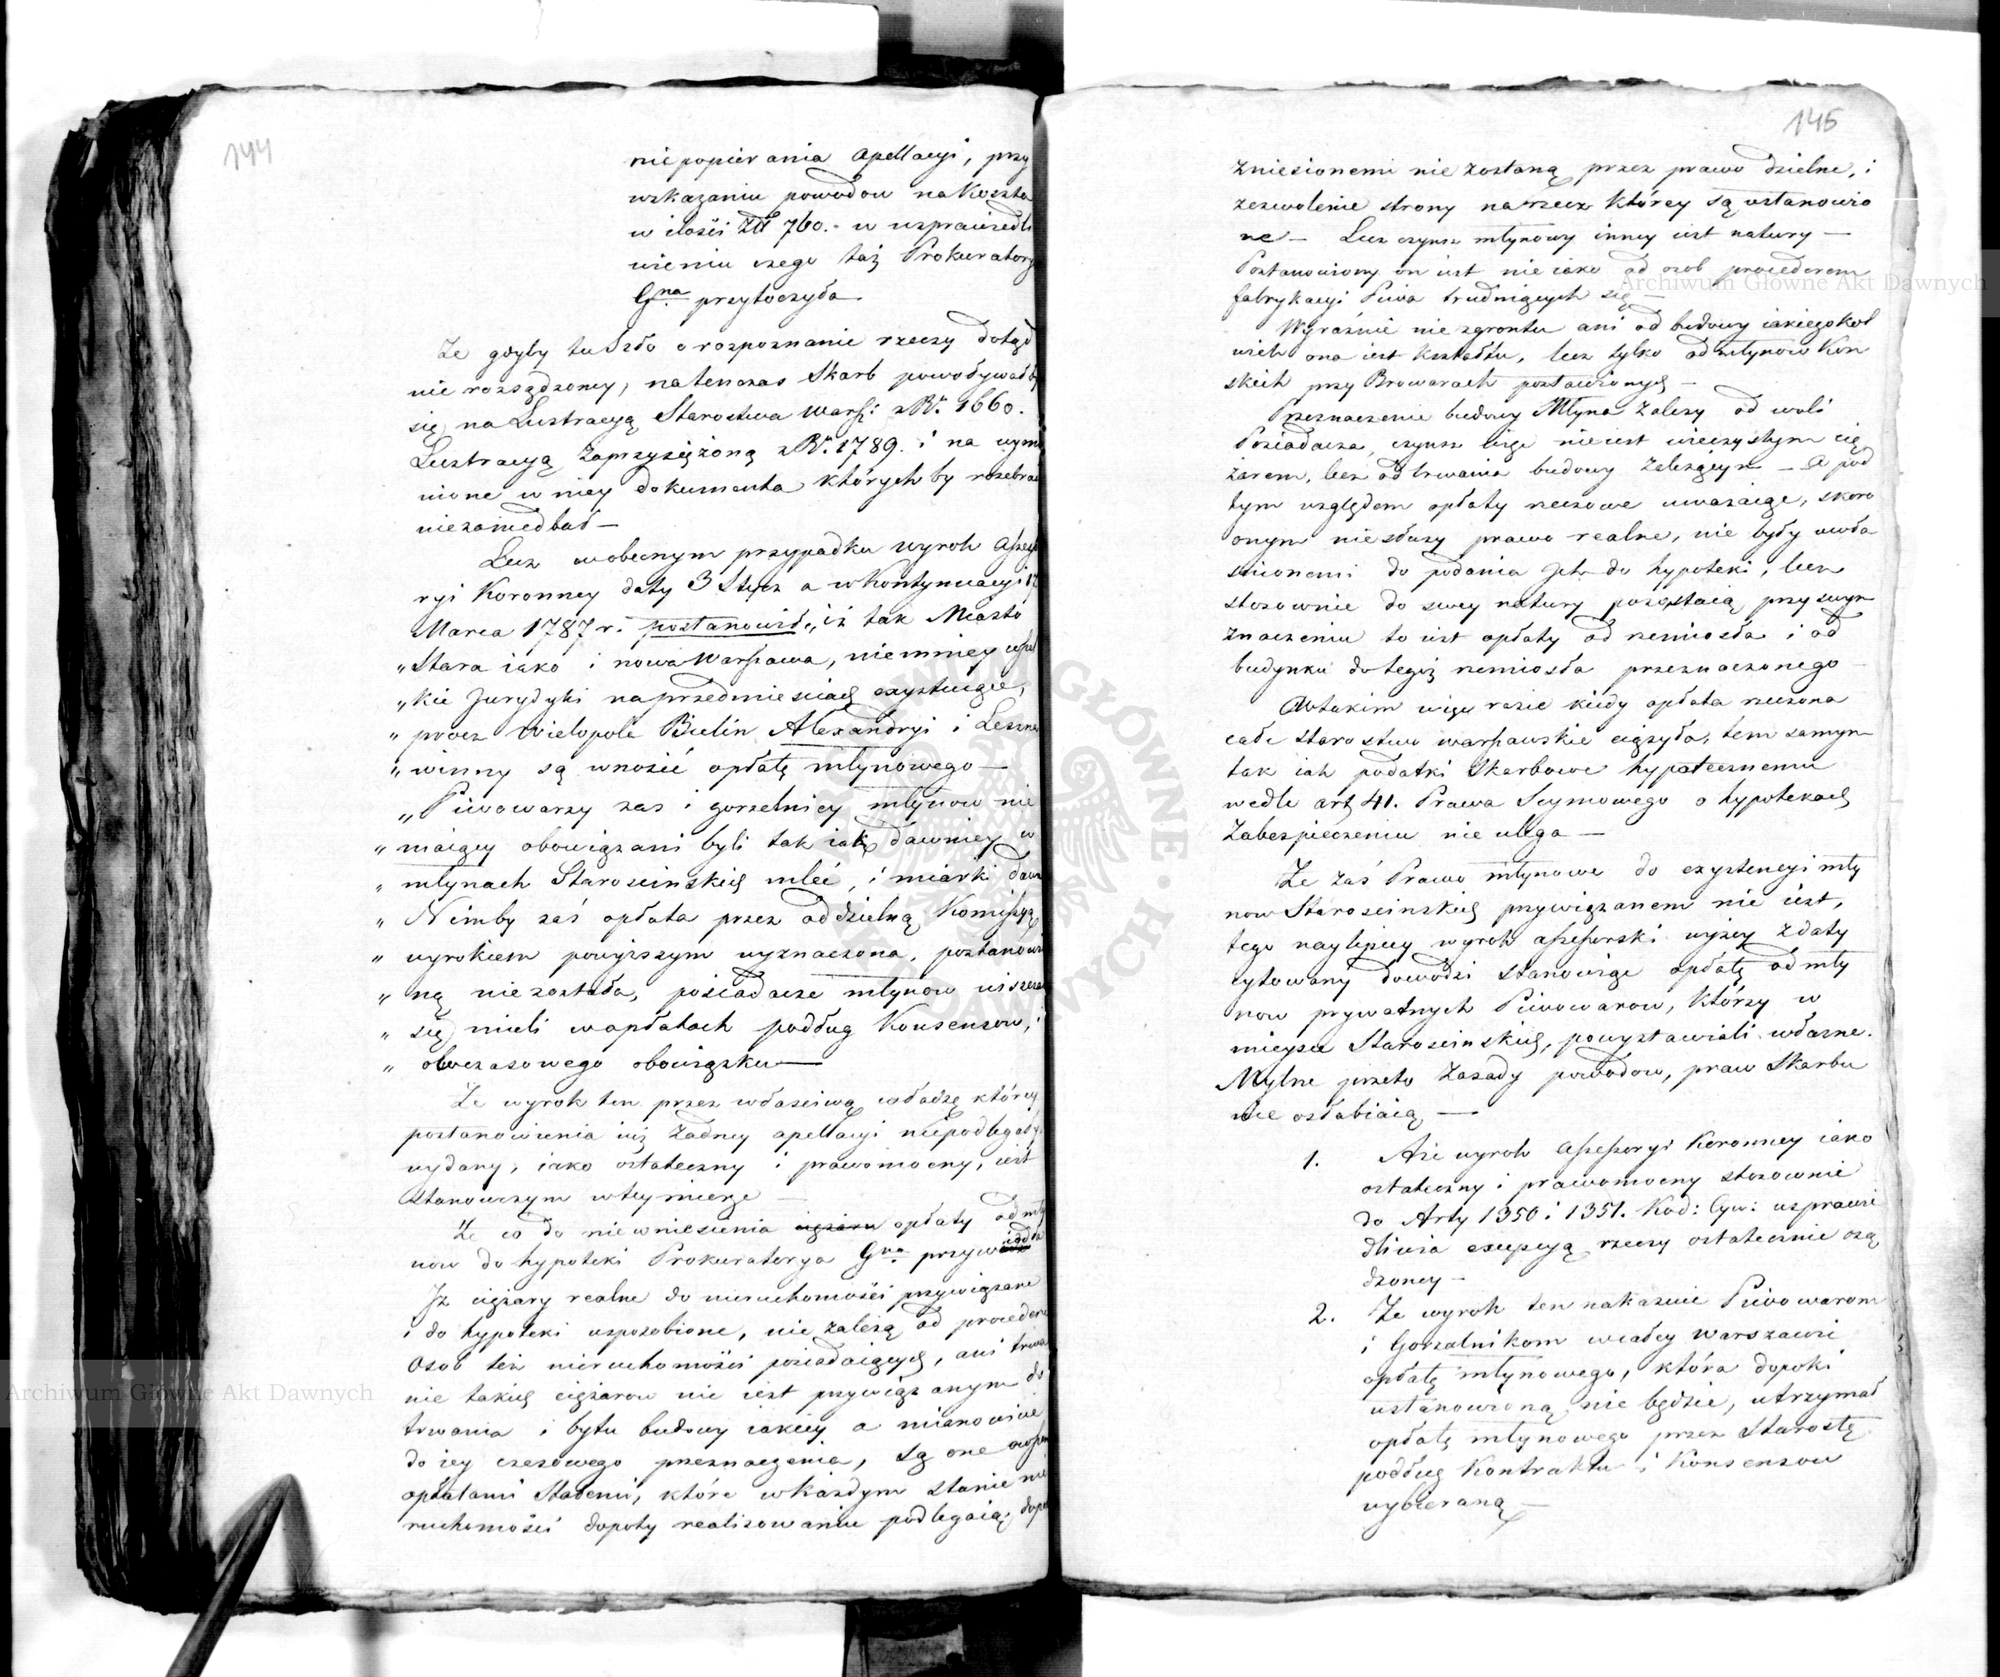 144
niepopierania apellacyi, przy
wskazaniu powodow na Koszta
w ilości Złł 760.- w usprawiedli
wieniu czego taż Prokuratorya
Gna przytoczyła
Że gdyby tu szło o rozpoznanie rzeczy dotąd
nie rozsądzoney, natenczas Skarb powoływałby
się na Lustracyą Starostwa Warsz: z R. 1660.
Lustracyą Zaprzysiężoną z R. 1789. i na wymie
nione w niey dokumenta których by rozebrać
niezaniedbał —
Lecz w obecnym przypadku wyrok Assesso
ryi Koronney daty 3 Stycz a w Kontynuacyi 17
Marca 1787 r. postanowił „iż tak Miasto
„Stara iako i nowa Warszawa, niemniey wszel
„kie Jurydyki na przedmiesciach exystuiące,
„prócz Wielopole Bielin Alexandryi i Leszna
„winny są wnosić opłatę młynowego —
„Piwowarzy zas i gorzelnicy młynow nie
„maiący obowiązani byli tak iak dawniey w
„młynach Starościnskich mleć, i miarki dawać
„Nimby zaś opłata przez oddzielną Komissyą
„wyrokiem powyższym wyznaczona, postanowio
„ną nie została, posiadacze młynow uiszczać
„się mieli w opłatach podług Konsensow, i
„obecnasowego obowiązku —
Że wyrok ten przez właściwą władzę którey
postanowienia iuż żadney apellacyi niepodlegały
wydany, iako ostateczny i prawomocny, iest
stanowczym w tey mierze —
Że co do niewniesienia ciężaru opłaty od mły
now do hypoteki Prokuratorya Gna przywiodła
Iż ciężary realne do nieruchomości przywiązane
i do hypoteki usposobione, nie zależą od procederu
Osob też nieruchomości posiadaiących, ani trwa
nie takich ciężarow nie iest przywiązanym do
trwania i bytu budowy iakiey a mianowicie
do iey czasowego przeznaczenia, są one owszem
opłatami Stałemi, które w każdym stanie nie
ruchomości dopoty realizowaniu podlegaią, dopóki
145
zniesionemi nie zostaną przez prawo dzielne, i
zezwolenie strony na rzecz którey są ustanowio
ne — Lecz czynsz młynowy inney iest natury —
Postanowiony on iest nieiako od osob procederem
fabrykacyi Piwa trudniących się —
Wyraźnie nie z gruntu ani od budowy iakiegokol
wiek ona iest kształtu, lecz tylko od młynow Kon
skich przy Browarach postawionych —
Przeznaczenie budowy Młyna zależy od woli
Posiadacza, czynsz więc nie iest wieczystym cię
żarem, lecz od trwania budowy zależącym — A pod
tym względem opłaty rzeczone uważaiąc, skoro
onym nie służy prawo realne, nie były uwła
scionemi do podania Ich do hypoteki, lecz
stosownie do swey natury pozostaią przy swym
znaczeniu to iest opłaty od rzemiosła i od
budynku do tegoż rzemiosła przeznaczonego —
W takim więc razie kiedy opłata rzeczona
całe starostwo warszawskie ciążyła, tem samym
tak iak podatki Skarbowe hypotecznemu
wedle art 41. Prawa Seymowego o hypotekach
Zabezpieczeniu nie ulega —
Że zaś Prawo młynowe do exystencyi mły
now Starościnskich przywiązanem nie iest,
tego naylepiey wyrok assessorski wyżey z daty
cytowany dowodzi stanowiąc opłatę od mły
now prywatnych Piwowarow, którzy w
mieysce Starościnskich, powystawiali własne.
Mylne przeto zasady powodow, praw Skarbu
nie osłabiaią —
1. Aże wyrok Assessoryi Koronney iako
ostateczny i prawomocny stosownie
do Arty 1350 i 1351. Kod: Cyw: usprawie
dliwia excepcyą rzeczy ostatecznie osą
dzoney —
2. Że wyrok ten nakazuie Piwowarom
i Gorzalnikom w całey Warszawie
opłatę młynowego, która dopoki
ustanowioną nie będzie, utrzymał
opłatę młynowego przez Starostę
podług Kontraktu i Konsensow
wybieraną —
Archiwum Główne Akt Dawnych
Archiwum Główne Akt Dawnych